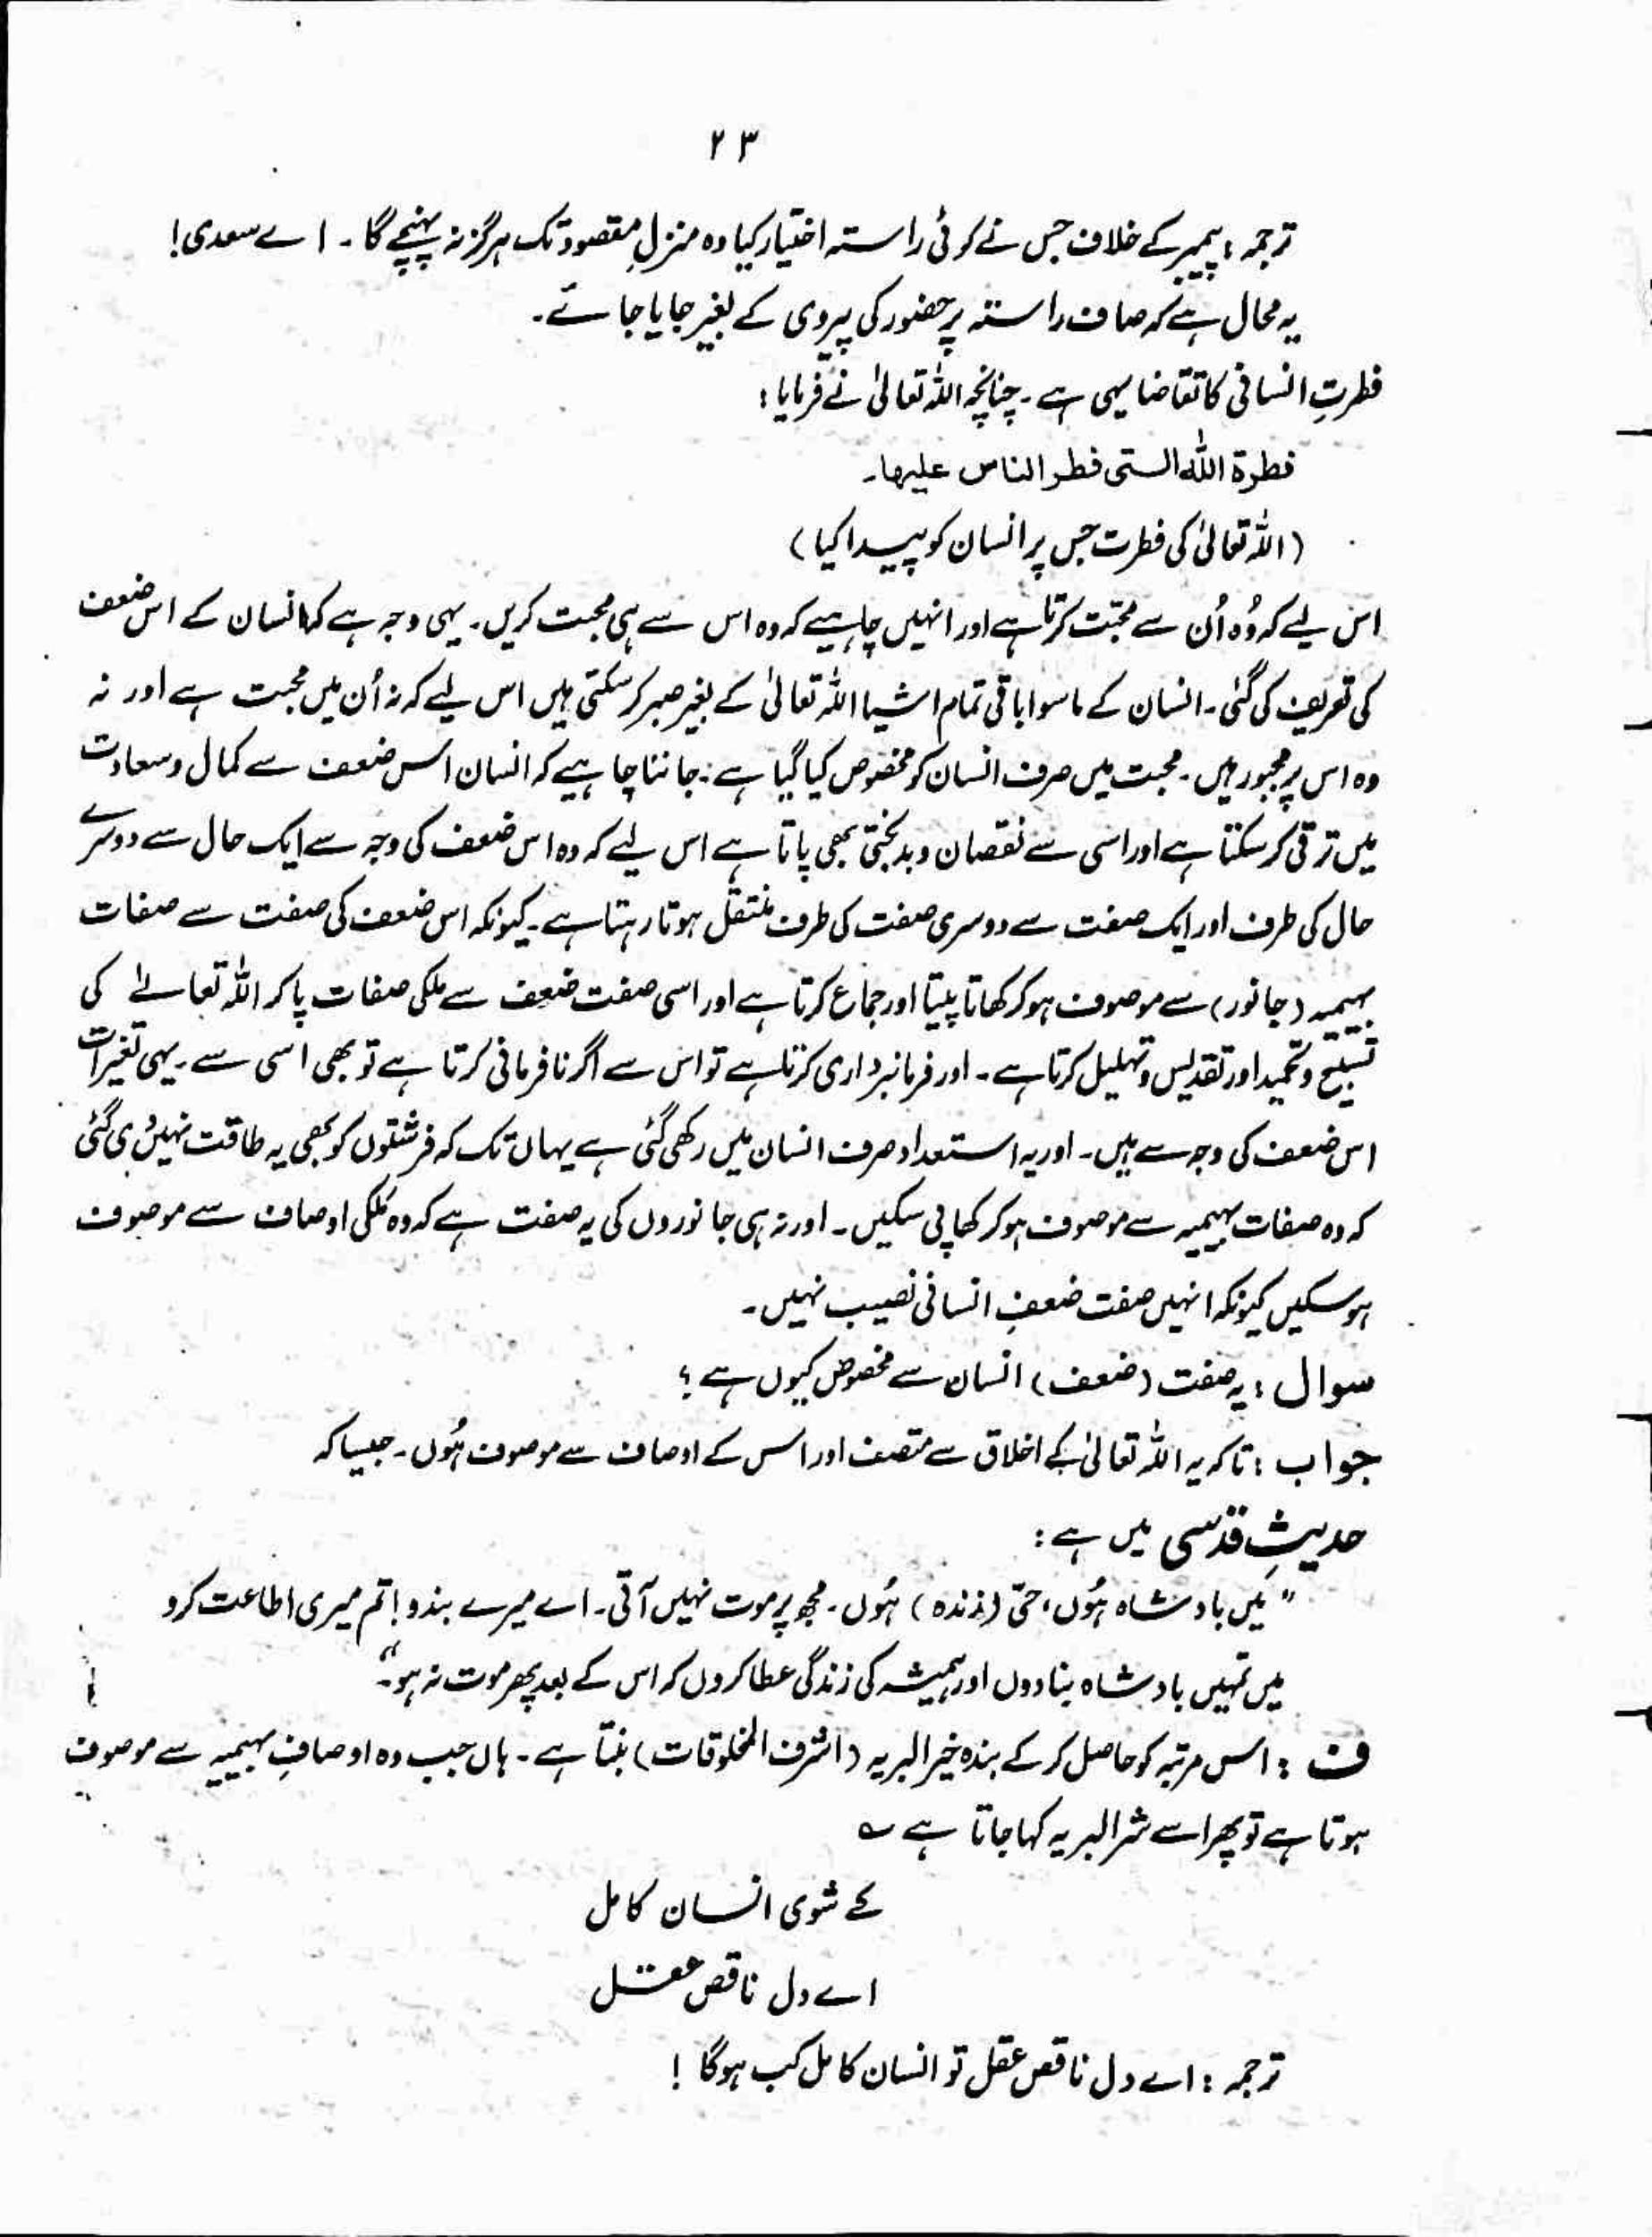 ۲۳
ترجمہ : پیمبر کے خلاف جس نے کوئی راستہ اختیار کیا وہ منزلِ مقصود تک ہرگز نہ پہنچے گا۔ اے سعدی!
یہ محال ہے کہ صاف راستہ پر حضور کی پیروی کے بغیر جایا جائے۔
فطرتِ انسانی کا تقاضا یہی ہے۔ چنانچہ اللہ تعالیٰ نے فرمایا :
فطرة اللہ التی فطر الناس علیها۔
(اللہ تعالیٰ کی فطرت جس پر انسان کو پیدا کیا)
اس لیے کہ وُہ اُن سے محبّت کرتا ہے اور انہیں چاہیے کہ وہ اس سے ہی محبت کریں۔ یہی وجہ ہے کہ انسان کے اس ضعف
کی تعریف کی گئی۔ انسان کے ماسوا باقی تمام اشیا اللہ تعالیٰ کے بغیر صبر کر سکتی ہیں اس لیے کہ نہ اُن میں محبت ہے اور نہ
وہ اس پر مجبور ہیں۔ محبت میں صرف انسان کو مخصوص کیا گیا ہے۔ جاننا چاہیے کہ انسان اس ضعف سے کمال و سعادت
میں ترقی کر سکتا ہے اور اسی سے نقصان و بدبختی بھی پاتا ہے اس لیے کہ وہ اس ضعف کی وجہ سے ایک حال سے دوسرے
حال کی طرف اور ایک صفت سے دوسری صفت کی طرف منتقل ہوتا رہتا ہے۔ کیونکہ اس ضعف کی صفت سے صفات
بہیمیہ (جانور) سے موصوف ہو کر کھاتا پیتا اور جماع کرتا ہے اور اسی صفت ضعف سے ملکی صفات پا کر اللہ تعالےٰ کی
تسبیح و تحمید اور تقدیس و تہلیل کرتا ہے۔ اور فرمانبرداری کرتا ہے تو اس سے اگر نافرمانی کرتا ہے تو بھی اسی سے۔ یہی تغیرات
اس ضعف کی وجہ سے ہیں۔ اور یہ استعداد صرف انسان میں رکھی گئی ہے یہاں تک کہ فرشتوں کو بھی یہ طاقت نہیں دی گئی
کہ وہ صفات بہیمیہ سے موصوف ہو کر کھا پی سکیں۔ اور نہ ہی جانوروں کی یہ صفت ہے کہ وہ مَلکی اوصاف سے موصوف
ہو سکیں کیونکہ انہیں صفت ضعفِ انسانی نصیب نہیں۔
سوال : یہ صفت (ضعف) انسان سے مخصوص کیوں ہے؟
جواب : تاکہ یہ اللہ تعالیٰ کے اخلاق سے متصف اور اس کے اوصاف سے موصوف ہُوں۔ جیسا کہ
حدیثِ قدسی میں ہے :
" میں بادشاہ ہُوں، حیّ (زندہ) ہُوں۔ مجھ پر موت نہیں آتی۔ اے میرے بندو! تم میری اطاعت کرو
میں تمہیں بادشاہ بنا دوں اور ہمیشہ کی زندگی عطا کروں کہ اس کے بعد پھر موت نہ ہو۔"
ف : اس مرتبہ کو حاصل کر کے بندہ خیر البریہ (اشرف المخلوقات) بنتا ہے۔ ہاں جب وہ اوصافِ بہیمیہ سے موصوف
ہوتا ہے تو پھر اسے شر البریہ کہا جاتا ہے ؎
کے شوی انسان کامل
اے دل ناقص عقل
ترجمہ : اے دل ناقص عقل تو انسان کامل کب ہوگا !